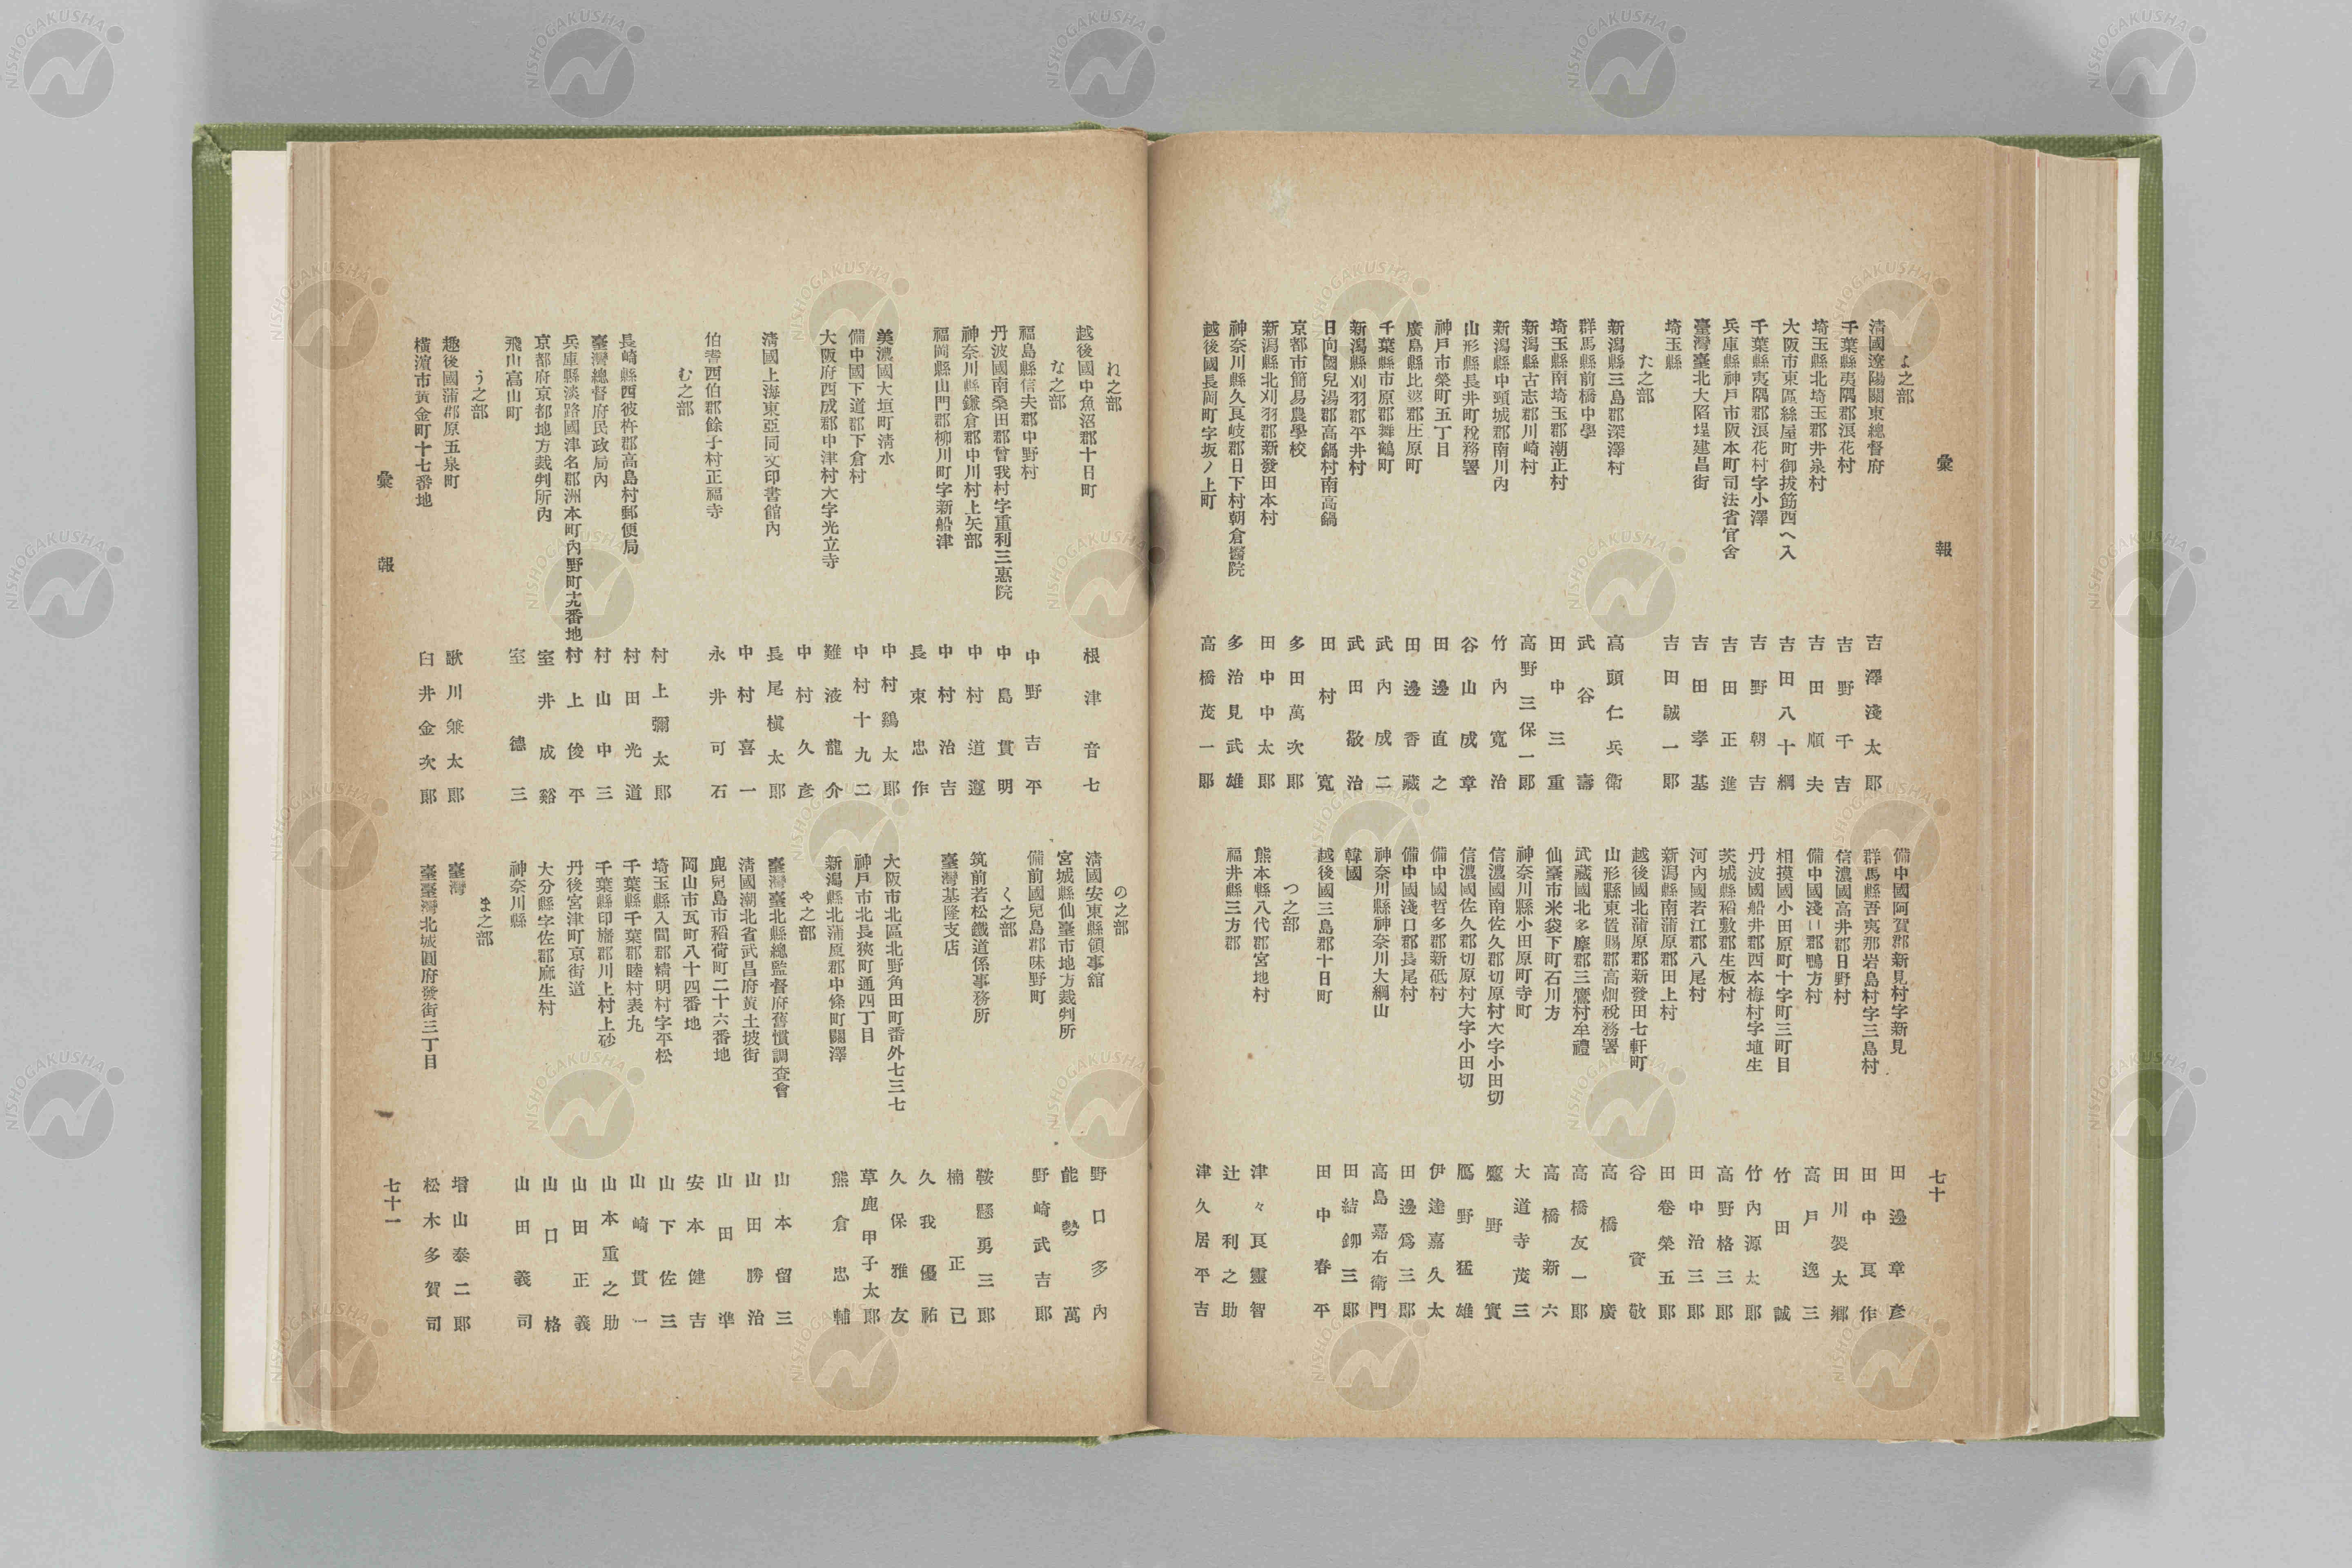 彙報
七十
よ之部
清國遼陽關東總督府 吉澤淺太郎
千葉縣夷隅郡浪花村 吉野千吉
埼玉縣北埼玉郡井泉村 吉田順夫
大阪市東區絲屋町御拔筋西へ入 吉田八十綱
千葉縣夷隅郡浪花村字小澤 吉野朝吉
兵庫縣神戸市阪本町司法省官舍 吉田正進
臺灣臺北大稻埕建昌街 吉田孝基
埼玉縣 吉田誠一郎
た之部
新潟縣三島郡深澤村 高頭仁兵衛
群馬縣前橋中學 武谷壽
埼玉縣南埼玉郡潮正村 田中三重
新潟縣古志郡川崎村 高野三保一郎
新潟縣中頸城郡南川內 竹內寬治
山形縣長井町稅務署 谷山成章
神戸市榮町五丁目 田邊直之
廣島縣比婆郡庄原町 田邊香藏
千葉縣市原郡舞鶴町 武內成二
新潟縣刈羽郡平井村 武田敬治
日向國兒湯郡高鍋村南高鍋 田村寬
京都市簡易農學校 多田萬次郎
新潟縣北刈羽郡新發田本村 田中中太郎
神奈川縣久良岐郡日下村朝倉醫院 多治見武雄
越後國長岡町字坂ノ上町 高橋茂一郎
備中國阿賀郡新見村字新見 田邊章彥
群馬縣吾夷那岩島村字三島村 田中良作
信濃國高井郡日野村 田川袈太鄉
備中國淺口郡鴨方村 高戸逸三
相摸國小田原町十字町三町目 竹田誠
丹波國船井郡西本梅村字埴生 竹內源太郎
茨城縣稻敷郡生板村 高野格三郎
河內國若江郡八尾村 田中治三郎
新潟縣南蒲原郡田上村 田卷榮五郎
越後國北蒲原郡新發田七軒町 谷資敬
山形縣東置賜郡高畑稅務署 高橋廣
武藏國北多摩郡三鷹村牟禮 高橋友一郎
仙臺市米袋下町石川方 高橋新六
神奈川縣小田原町寺町 大道寺茂三
信濃國南佐久郡切原村大字小田切 鷹野實
信濃國佐久郡切原村大字小田切 鷹野猛雄
備中國哲多郡新砥村 伊達嘉久太
備中國淺口郡長尾村 田邊爲三郎
神奈川縣神奈川大綱山 高島嘉右衛門
韓國 田結鉚三郎
越後國三島郡十日町 田中春平
つ之部
熊本縣八代郡宮地村 津々良靈智
福井縣三方郡 辻利之助
津久居平吉
ね之部
越後國中魚沼郡十日町 根津音七
な之部
福島縣信夫郡中野村 中野吉平
丹波國南桑田郡曾我村字重利三惠院 中島貫明
神奈川縣鎌倉郡中川村上矢部 中村道遵
福岡縣山門郡柳川町字新船津 中村治吉
長東忠作
美濃國大垣町清水 中村鷄太郎
備中國下道郡下倉村 中村十九二
大阪府西成郡中津村大字光立寺 難液龍介
中村久彥
清國上海東亞同文印書館內 長尾槇太郎
中村喜一
伯耆西伯郡餘子村正福寺 永井可石
む之部
村上彌太郎
長崎縣西彼杵郡高島村郵便局 村田光道
臺灣總督府民政局內 村山中三
兵庫縣淡路國津名郡洲本町內野町十九番地 村上俊平
京都府京都地方裁判所內 室井成谿
飛山高山町 室德三
う之部
趣後國蒲郡原五泉町 歌川兼太郎
橫濱市黄金町十七番地 臼井金次郎
の之部
清國安東縣領事舘 野口多內
宮城縣仙臺市地方裁判所 能勢萬
備前國兒島郡味野町 野崎武吉郎
く之部
筑前若松鐵道係事務所 鞍懸勇三郎
臺灣基隆支店 楠正己
久我優祐
大阪市北區北野角田町番外七三七 久保雅友
神戸市北長狹町通四丁目 草鹿甲子太郎
新潟縣北蒲原郡中條町關澤 熊倉忠輔
や之部
臺灣臺北縣總監督府舊慣調查會 山本留三
清國潮北省武昌府黄土坡街 山田勝治
鹿兒島市稻荷町二十六番地 山田準
岡山市瓦町八十四番地 安本健吉
埼玉縣入間郡精明村字平松 山下佐三
千葉縣千葉郡睦村表丸 山崎貫一
千葉縣印旛郡川上村上砂 山本重之助
丹後宮津町京街道 山田正義
大分縣字佐郡麻生村 山口格
神奈川縣 山田義司
ま之部
臺灣 增山泰二郎
臺臺灣北城圓府發街三丁目 松木多賀司
彙報
七十一